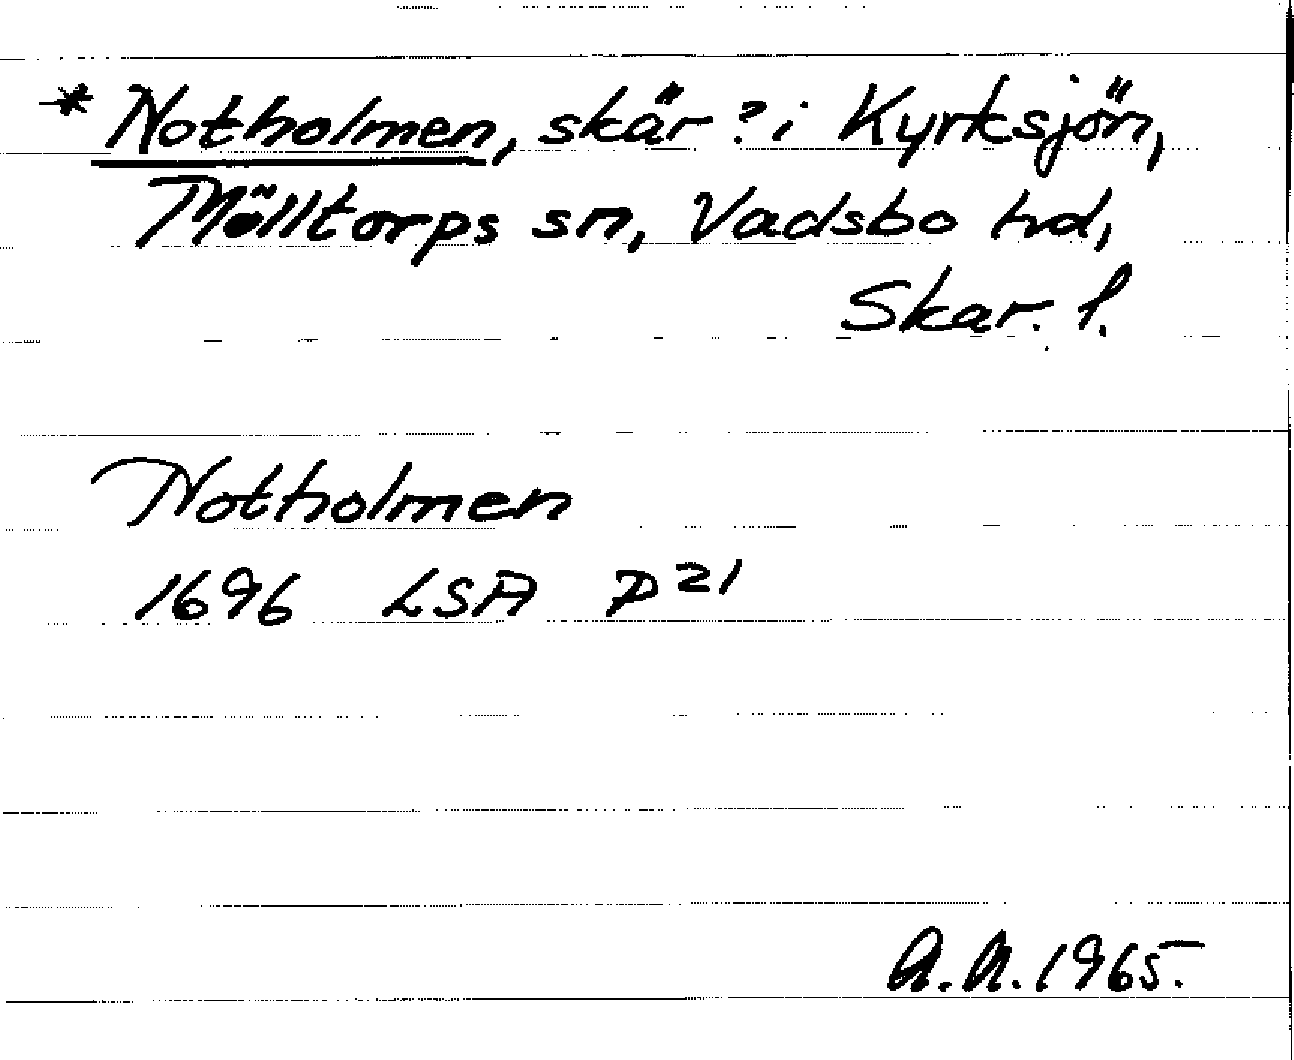 * Notholmen, skär? i Kyrksjön,
Mölltorps sn, Vadsbo hd,
Skar. l.
Notholmen
1696 LSA P21
A.A. 1965.